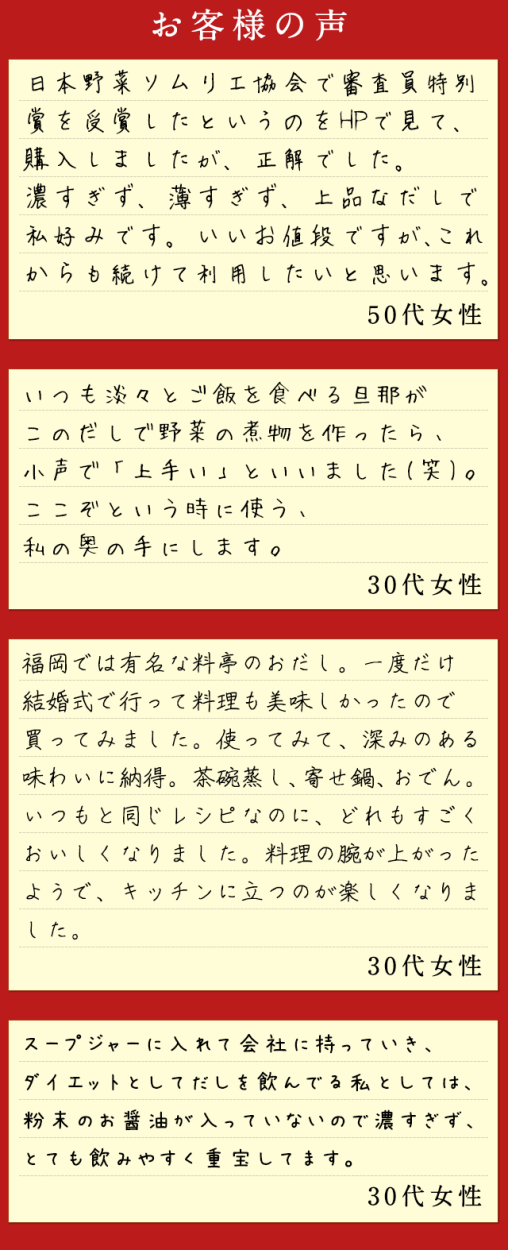 お客様の声
日本野菜ソムリエ協会で審査員特別
賞を受賞したというのをHPで見て、
購入しましたが、正解でした。
濃すぎず、薄すぎず、上品なだしで
私好みです。いいお値段ですが、これ
からも続けて利用したいと思います。
50代女性
いつも淡々とご飯を食べる旦那が
このだしで野菜の煮物を作ったら、
小声で「上手い」といいました(笑)。
ここぞという時に使う、
私の奥の手にします。
30代女性
福岡では有名な料亭のおだし。一度だけ
結婚式で行って料理も美味しかったので
買ってみました。使ってみて、深みのある
味わいに納得。茶碗蒸し、寄せ鍋、おでん。
いつもと同じレシピなのに、どれもすごく
おいしくなりました。料理の腕が上がった
ようで、キッチンに立つのが楽しくなりま
した。
30代女性
スープジャーに入れて会社に持っていき、
ダイエットとしてだしを飲んでる私としては、
粉末のお醤油が入っていないので濃すぎず、
とても飲みやすく重宝してます。
30代女性